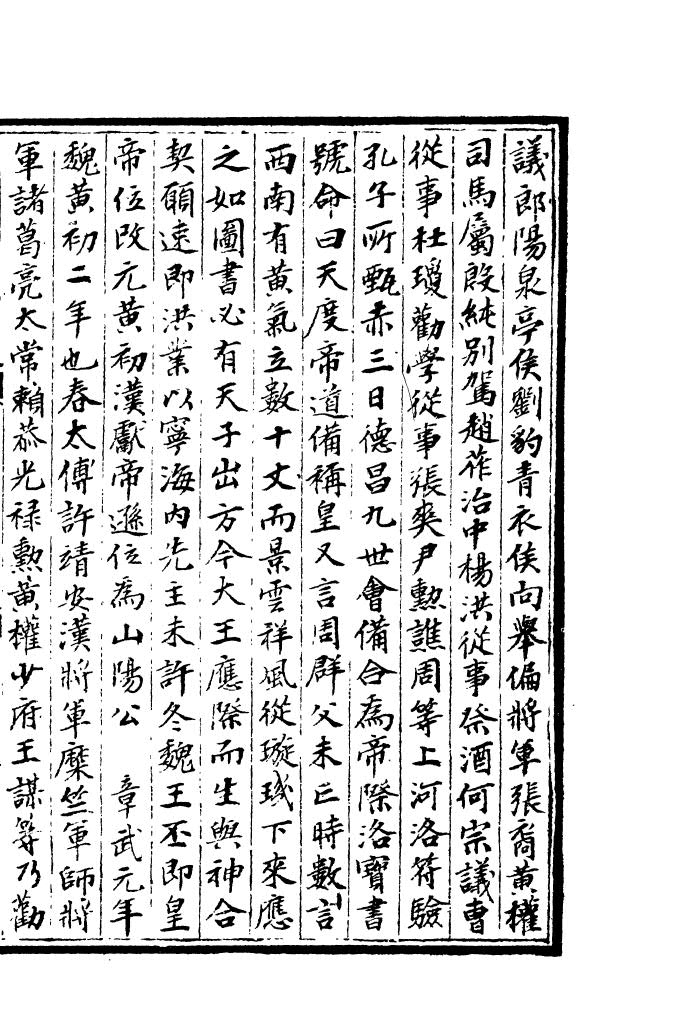 議郎陽泉亭侯劉豹青衣侯向舉偏將軍張裔黃權
司馬屬殷純別駕趙莋治中楊洪從事祭酒何宗議曹
從事杜瓊勸學從事張爽尹勲譙周等上河洛符驗
孔子所甄赤三日德昌九世會備合為帝際洛寶書
號命曰天度帝道備稱皇又言周群父未亡時數言
西南有黃氣立數十丈而景雲祥風從璇璣下來應
之如圖書必有天子出方今大王應際而生與神合
契願速即洪業以寧海內先主未許冬魏王丕即皇
帝位改元黃初漢獻帝遜位為山陽公　章武元年
魏黃初二年也春太傅許靖安漢將軍糜竺軍師將
軍諸葛亮太常賴恭光祿勲黃權少府王謀等乃勸